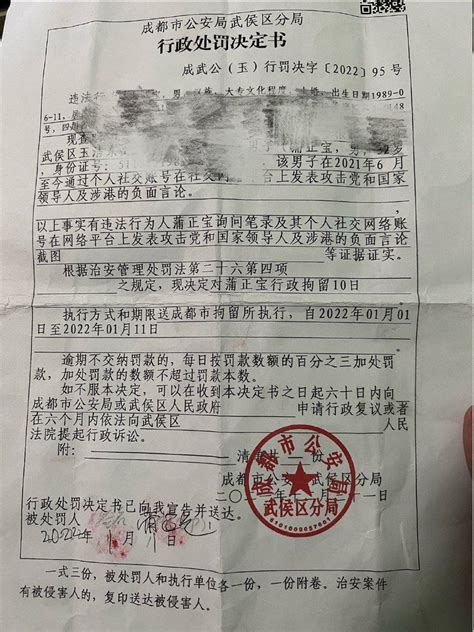 成都市公安局武侯区分局
行政处罚决定书
成武公（玉）行罚决字［2022］95 号
违法行 男 大专文化程度 出生日期1989-0
6-11，
号，四
现查
武侯区玉 蒲正宝，男，
，身份证号：51 该男子在2021年6月
至今通过个人社交账号在社交 发表攻击党和国家
领导人及涉港的负面言论。
以上事实有违法行为人蒲正宝询问笔录及其个人社交网络账
号在网络平台上发表攻击党和国家领导人及涉港的负面言论
截图 等证据证实。
根据治安管理处罚法第二十六第四项
之规定，现决定对蒲正宝行政拘留10日
执行方式和期限送成都市拘留所执行，自2022年01月01
日至2022年01月11日
逾期不交纳罚款的，每日按罚款数额的百分之三加处罚
款，加处罚款的数额不超过罚款本数。
如不服本决定，可以在收到本决定书之日起六十日内向
成都市公安局或武侯区人民政府 申请行政复议或者
在六个月内依法向武侯区 人民
法院提起行政诉讼。
附： 清单共 份
成都市公安局武侯区分局
二〇 年 月 十一日
成都市公安局
武侯区分局
行政处罚决定书已向我宣告并送达。
被处罚人
2022年1月1日
一式三份，被处罚人和执行单位各一份，一份附卷。治安案件
有被侵害人的，复印送达被侵害人。